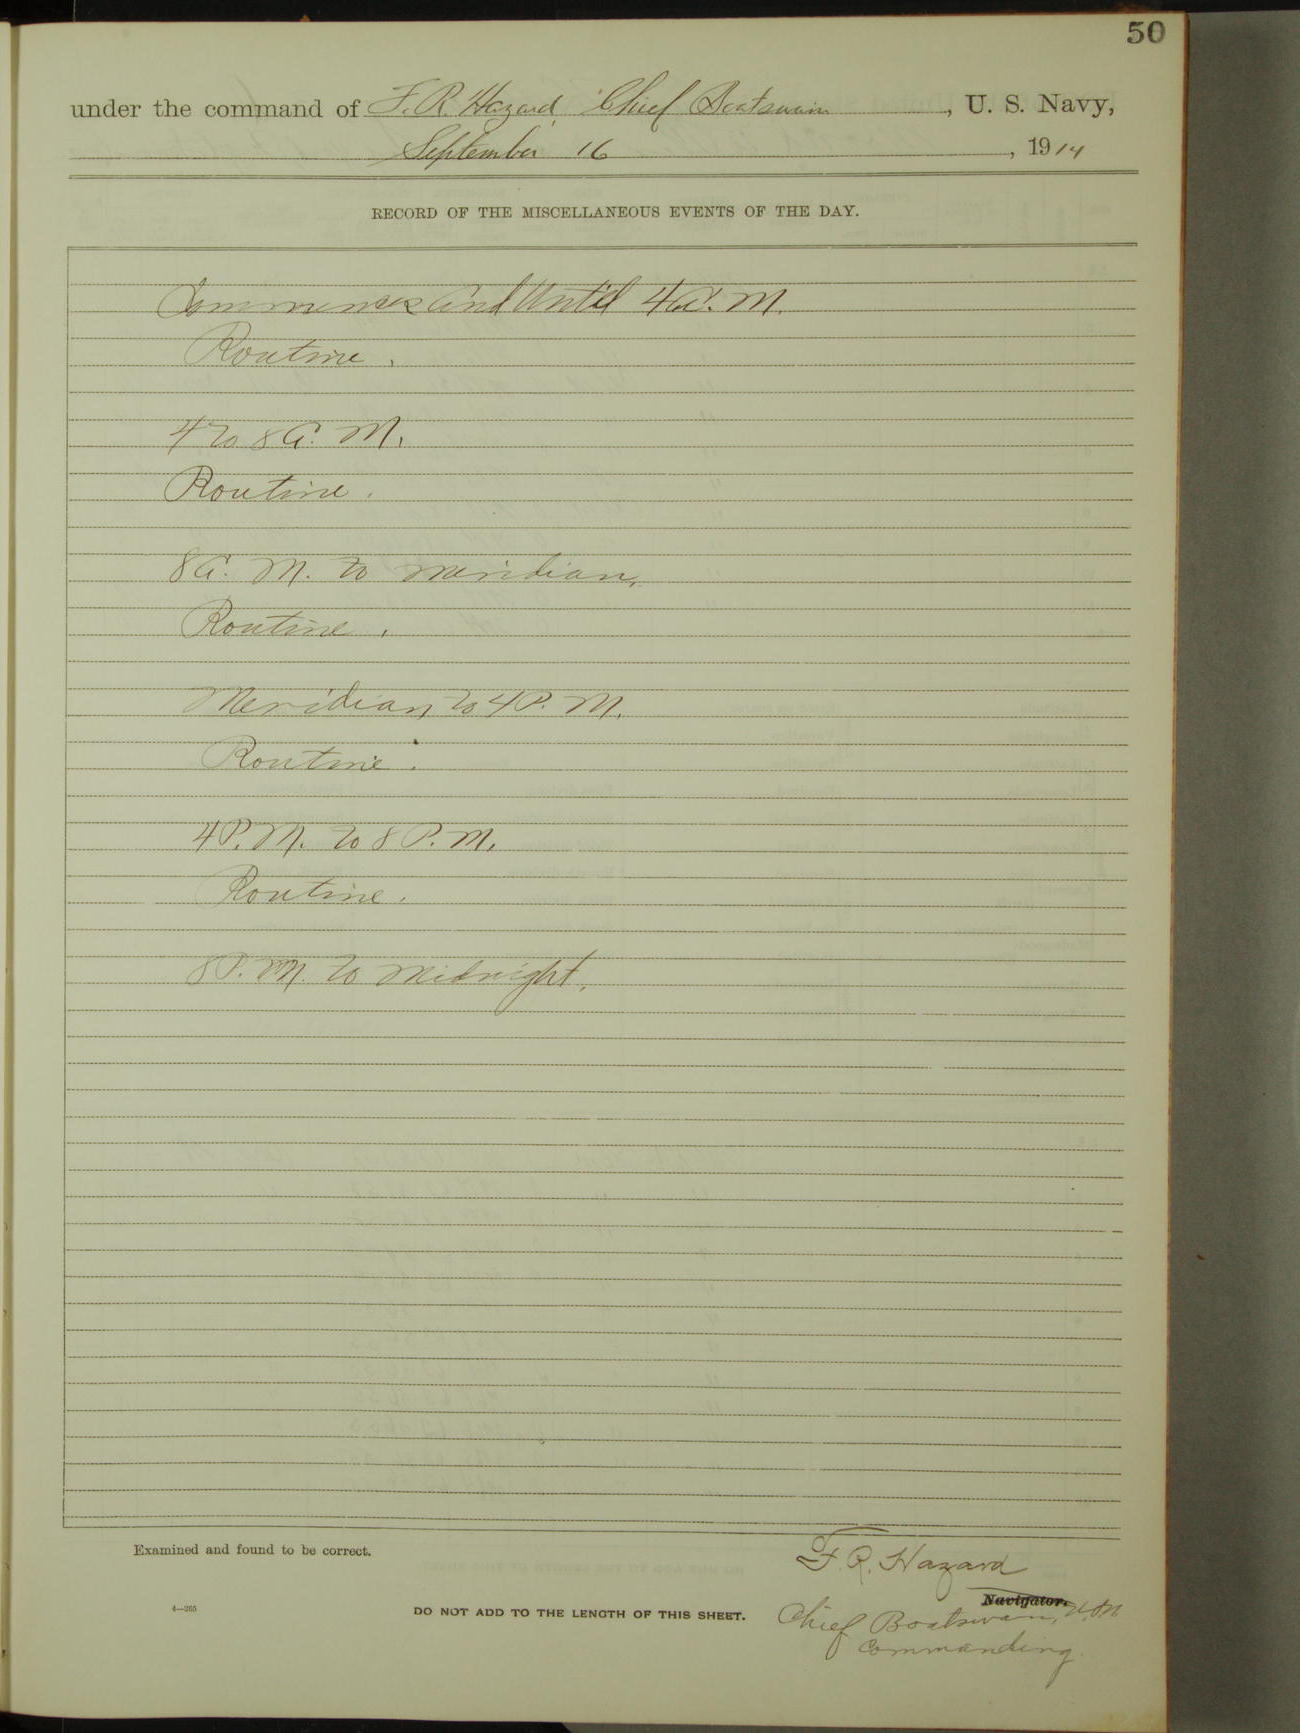 50
under the command of F. R. Hazard, Chief Boatswain, U. S. Navy,
September 16, 1914
RECORD OF THE MISCELLANEOUS EVENTS OF THE DAY.
Commences and Until 4 A. M.
Routine.
4 to 8 A. M.
Routine.
8 A. M. to meridian.
Routine.
Meridian to 4 P. M.
Routine.
4 P. M. to 8 P. M.
Routine.
8 P. M. to Midnight.
Examined and found to be correct.
F. R. Hazard
Navigator.
Chief Boatswain, U.S.N
Commanding
4—265
DO NOT ADD TO THE LENGTH OF THIS SHEET.